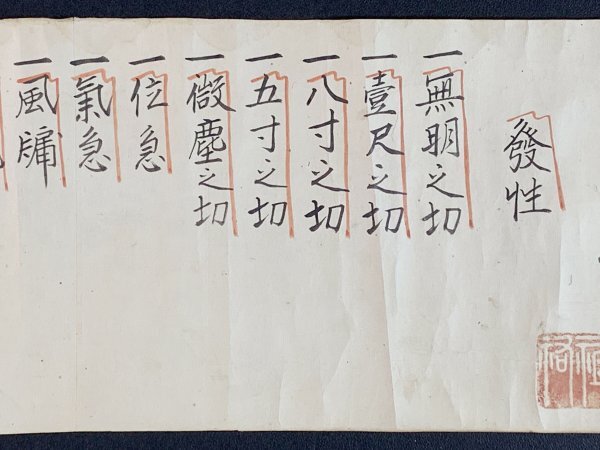 發性
一無明之切
一壹尺之切
一八寸之切
一五寸之切
一微塵之切
一位急
一氣急
一風牗